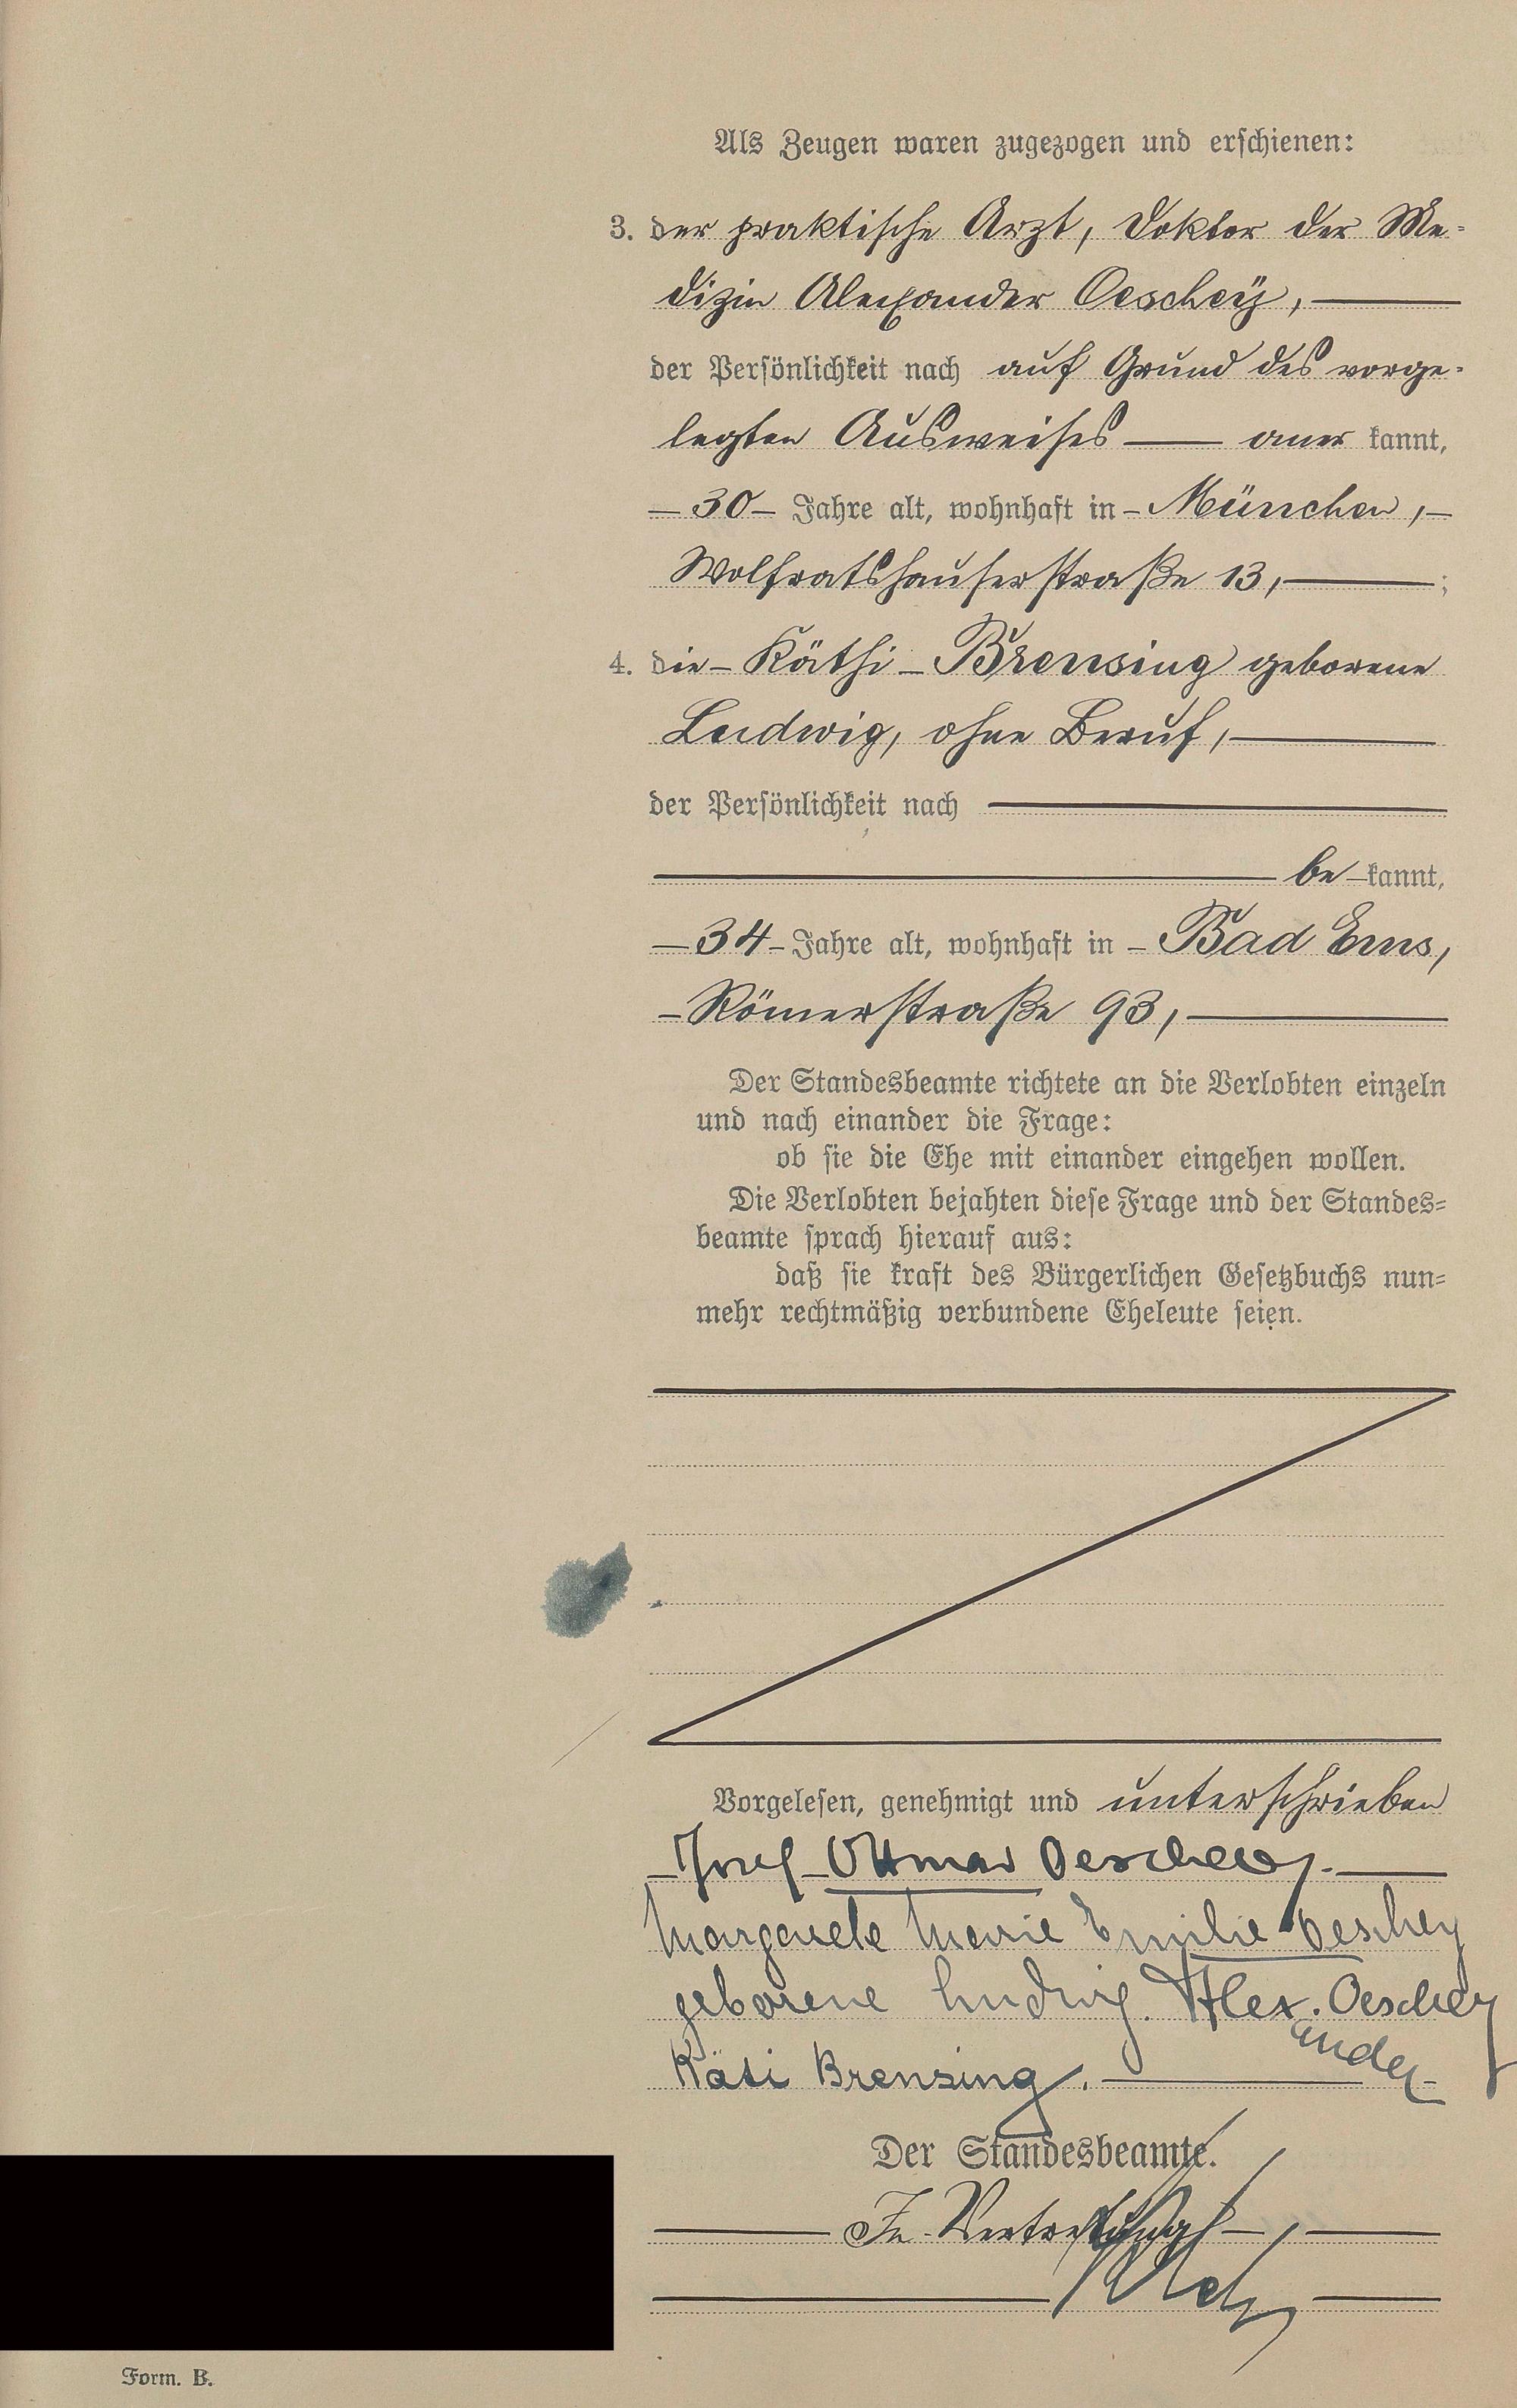 Als Zeugen waren zugezogen und erschienen:
3. der praktische Arzt, Doktor der Me-
dizin Alexander Oeschey,
der Persönlichkeit nach auf Grund des vorge-
legten Ausweises — aner kannt,
— 30 — Jahre alt, wohnhaft in – München, –
Wolfratshauserstraße 13, — ;
4. die – Käthi – Brensing geborene
Ludwig, ohne Beruf, —
der Persönlichkeit nach —
— be – kannt,
— 34 – Jahre alt, wohnhaft in – Bad Ems,
– Römerstraße 93, —
Der Standesbeamte richtete an die Verlobten einzeln
und nach einander die Frage:
ob sie die Ehe mit einander eingehen wollen.
Die Verlobten bejahten diese Frage und der Standes-
beamte sprach hierauf aus:
daß sie kraft des Bürgerlichen Gesetzbuchs nun-
mehr rechtmäßig verbundene Eheleute seien.
Vorgelesen, genehmigt und unterschrieben
– Josef – Ottmar Oeschey. —
Margarete Marie Emilie Oeschey
geborene Ludwig. Alex. Oeschey
ander
Käti Brensing. —
Der Standesbeamte.
— In Vertretung —
Form. B.